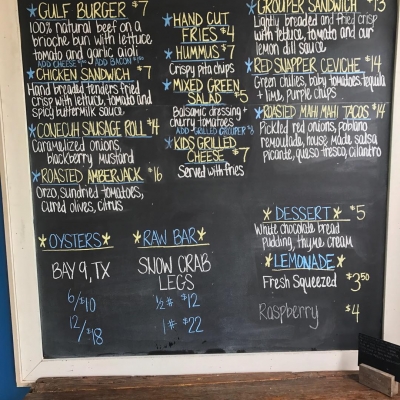 GULF BURGER $7
100% natural beef on a
brioche bun with lettuce
tomato and garlic aioli
CHICKEN SANDWICH $7
Hand breaded tenders fried
crisp with lettuce, tomato and
spicy buttermilk sauce
CONECUH SAUSAGE ROLL $14
Caramelized onions,
blackberry mustard
ROASTED AMBERJACK $16
Orzo, sundried tomatoes,
cured olives, citrus
HAND CUT
FRIES $4
HUMMUS $7
Crispy pita chips
MIXED GREEN
SALAD $5
Balsamic dressing +
cherry tomatoes
ADD GRILLED GROUPER $8
KIDS GRILLED
CHEESE $7
Served with fries
GROUPER SANDWICH $13
Lightly breaded and fried crisp
with lettuce, tomato and our
lemon dill sauce
RED SNAPPER CEVICHE $14
Green chilies, baby tomatoes, tequila
+ lime, purple chips
ROASTED MAHI MAHI TACOS $14
Pickled red onions, poblano
remoulade, house made salsa
picante, queso fresco, cilantro
OYSTERS
BAY 9, TX
6/$10
12/$18
RAW BAR
SNOW CRAB
LEGS
½# $12
1# $22
DESSERT $5
White chocolate bread
pudding, thyme cream
LEMONADE
Fresh Squeezed $3.50
Raspberry $4